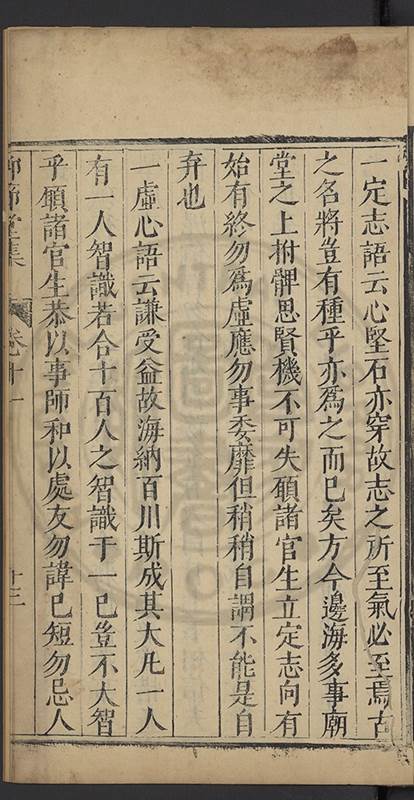 一定志語云心堅石亦穿故志之所至氣必至焉古
之名將豈有種乎亦爲之而已矣方今邊海多事廟
堂之上拊髀思賢機不可失願諸官生立定志向有
始有終勿爲虛應勿事委靡但稍稍自謂不能是自
弃也
一虛心語云謙受益故海納百川斯成其大凡一人
有一人智識若合十百人之智識于一已豈不大智
乎願諸官生恭以事師和以處友勿諱已短勿忌人
卷十一
十三